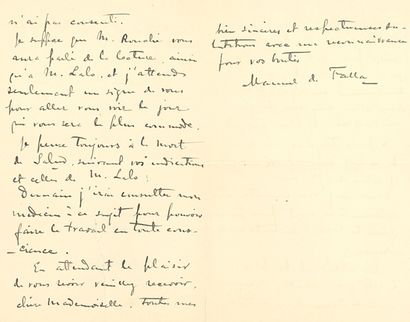 n'ai pas consenti.
Je suppose que M. Rouché vous
aura parlé de la lecture, ainsi
qu'à M. Lalo, et j'attends
seulement un signe de vous
pour aller vous voir le jour
qui vous sera le plus commode.
Je pense toujours à la mort
de Salud, suivant vos indications
et celles de M. Lalo:
Demain j'irai consulter mon
médecin à ce sujet pour pouvoir
faire le travail en toute cons-
-cience.
En attendant le plaisir
de vous revoir veuillez recevoir,
chère Mademoiselle, toutes mes
bien sincères et respectueuses sa-
lutations avec ma reconnaissance
pour vos bontés
Manuel de Falla